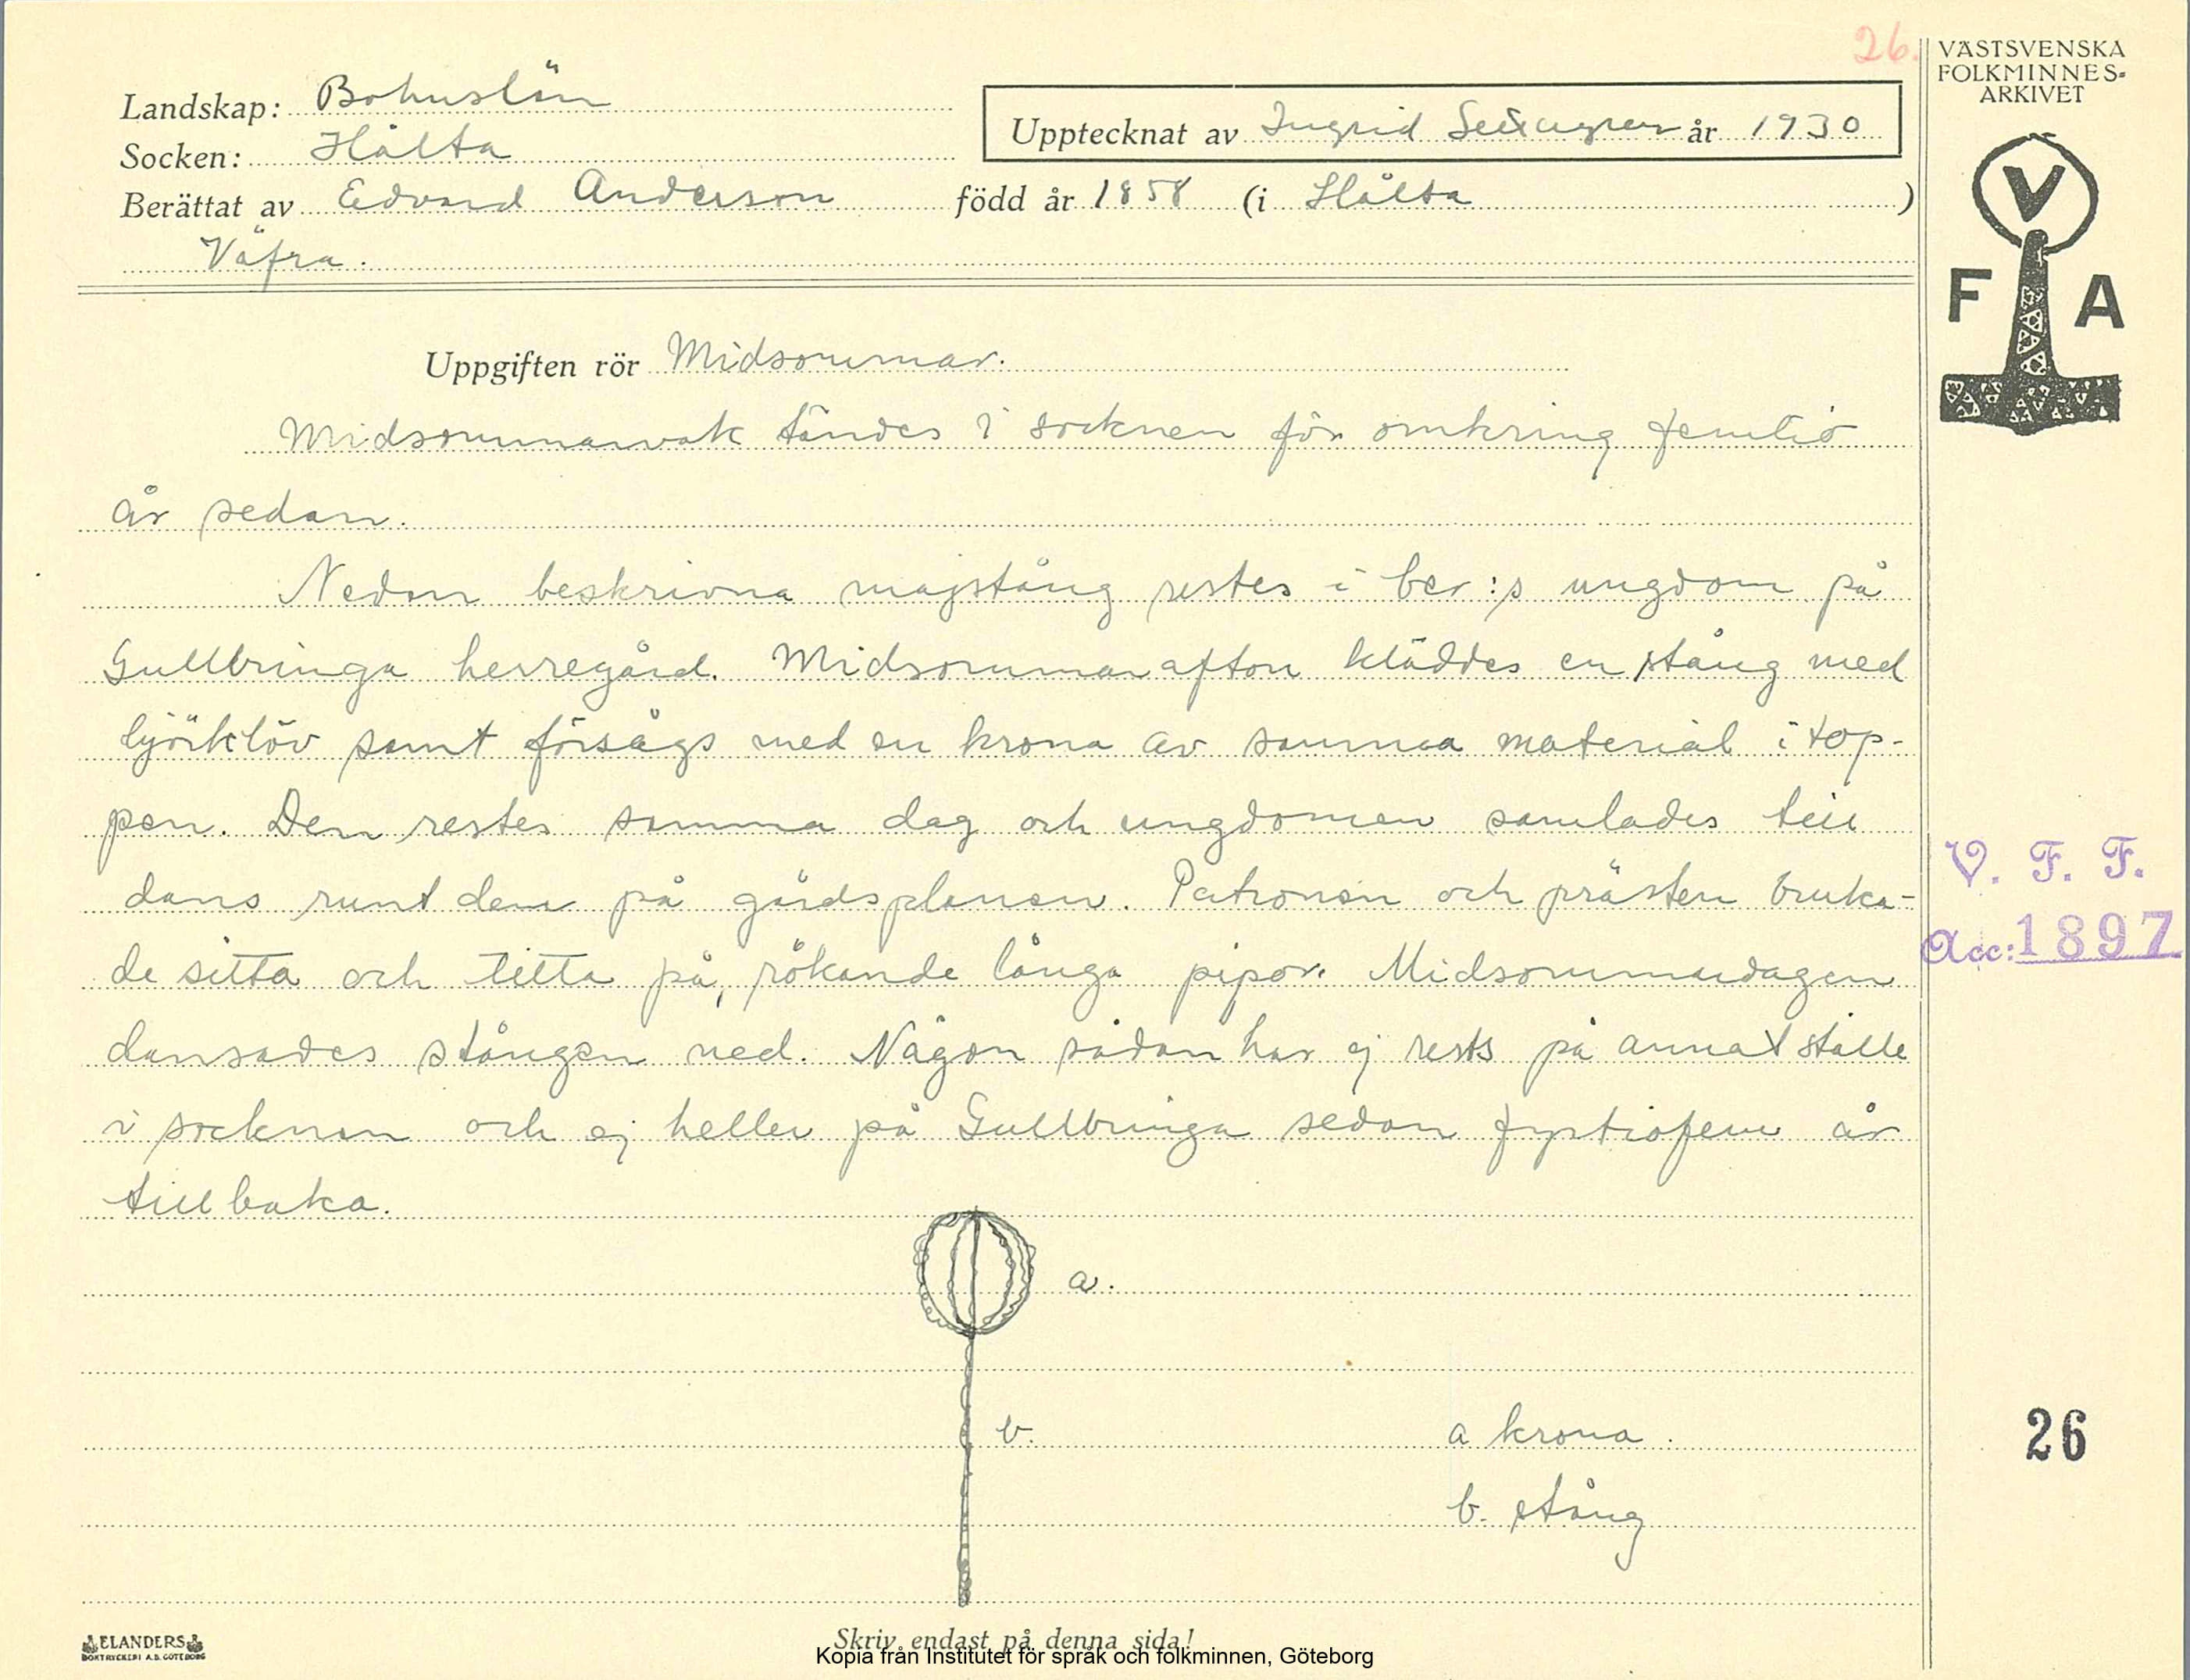 26.
VÄSTSVENSKA
FOLKMINNES-
ARKIVET
Landskap: Bohuslän
Socken: Hålta
Upptecknat av Ingrid år 1930
Berättat av Edvard Anderson född år 1858 (i Hålta)
Väfra.
V
F A
Uppgiften rör Midsommar.
Midsommarvak tändes i socknen för omkring femtio
år sedan.
Nedan beskrivna majstång restes i ber:s ungdom på
Gullbringa herregård. Midsommarafton kläddes en stång med
björklöv samt försågs med en krona av samma material i top-
pen. Den restes samma dag och ungdomen samlades till
dans runt den på gårdsplanen. Patronen och prästen bruka-
de sitta och titta på, rökande långa pipor. Midsommardagen
dansades stången ned. Någon sådan har ej rests på annat ställe
i socknen och ej heller på Gullbringa sedan fyrtiofem år
tillbaka.
V. F. F.
Acc: 1897
a.
b.
a krona.
b. stång
26
ELANDERS
BOKTRYCKERI A.B. GÖTEBORG
Skriv endast på denna sida!
Kopia från Institutet för språk och folkminnen, Göteborg